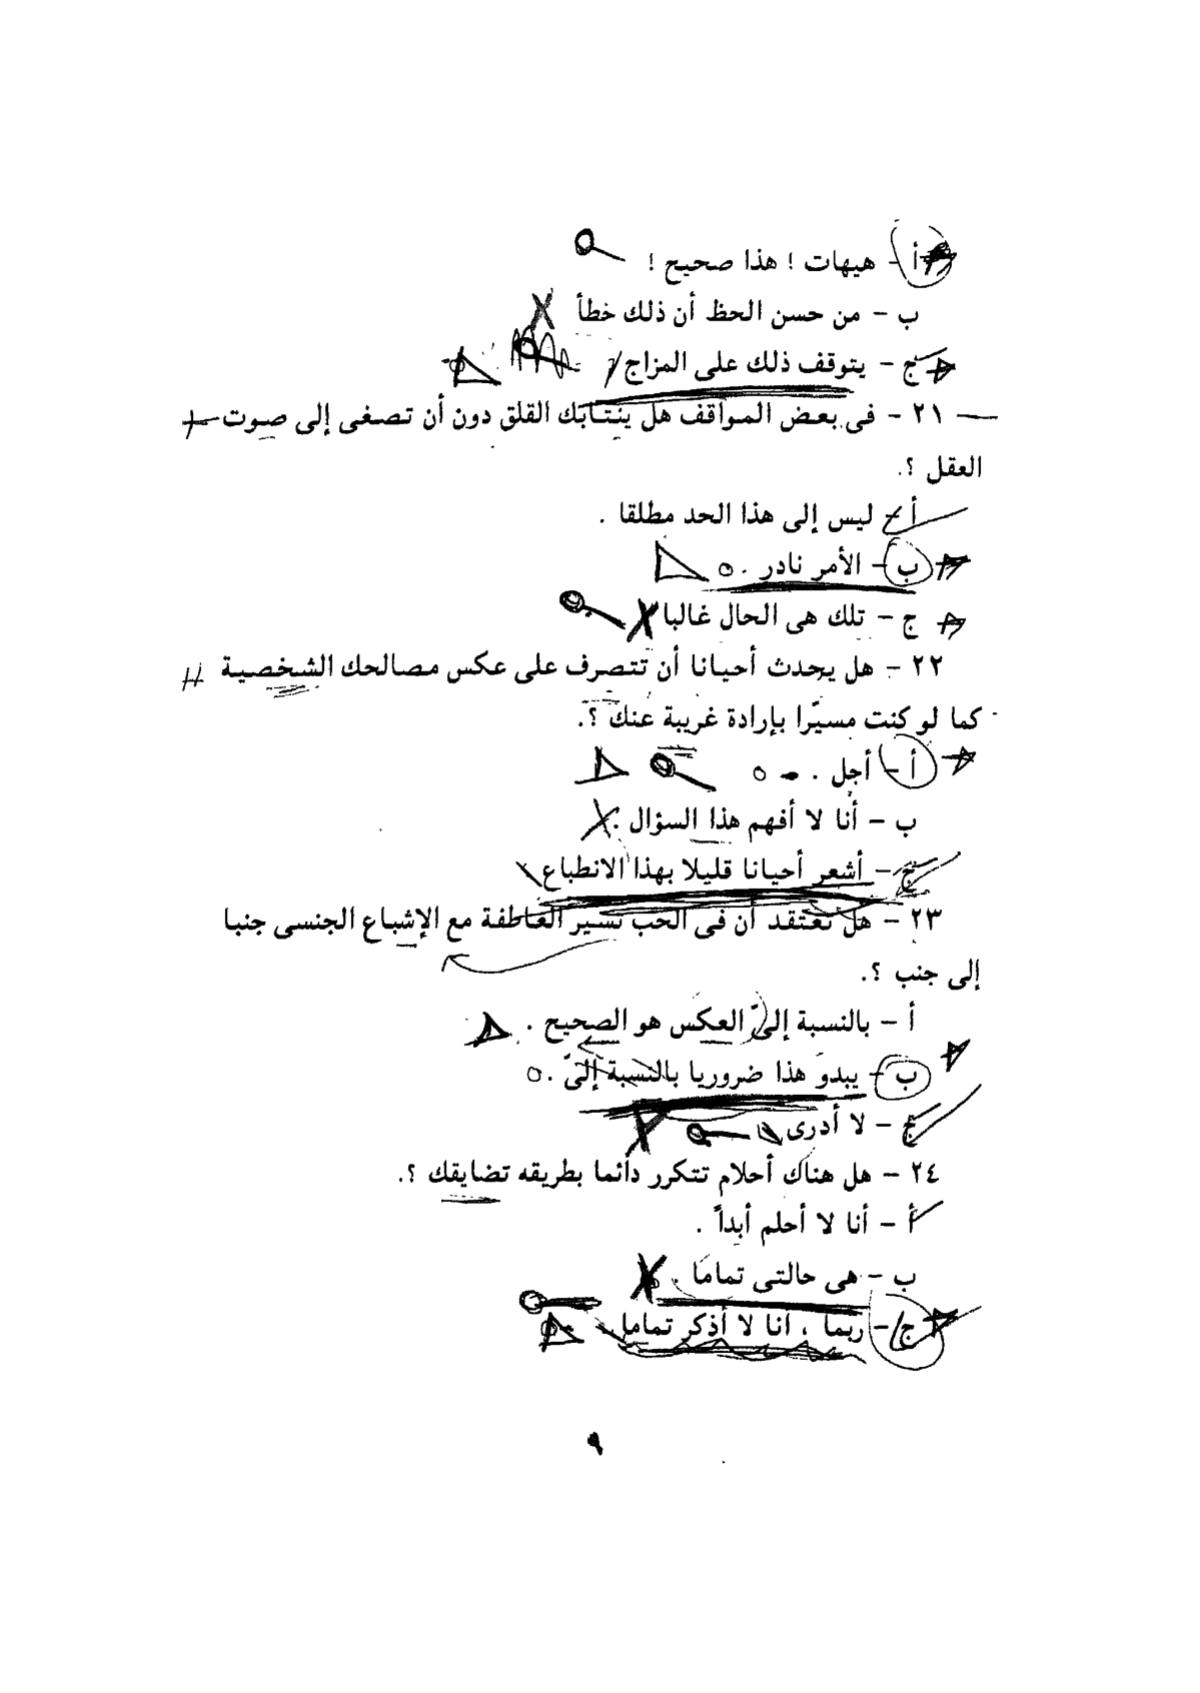 أ - هيهات ! هذا صحيح !
ب - من حسن الحظ أن ذلك خطأ
ج - يتوقف ذلك على المزاج
٢١ - فى بعض المواقف هل ينتابك القلق دون أن تصغى إلى صوت
العقل ؟.
أ - ليس إلى هذا الحد مطلقا .
ب - الأمر نادر .
ج - تلك هى الحال غالبا
٢٢ - هل يحدث أحيانا أن تتصرف على عكس مصالحك الشخصية
كما لو كنت مسيّرا بإرادة غريبة عنك ؟.
أ - أجل .
ب - أنا لا أفهم هذا السؤال .
ج - أشعر أحيانا قليلا بهذا الانطباع
٢٣ - هل تعتقد أن فى الحب تسير العاطفة مع الإشباع الجنسى جنبا
إلى جنب ؟.
أ - بالنسبة إلىّ العكس هو الصحيح .
ب - يبدو هذا ضروريا بالنسبة إلىّ .
ج - لا أدرى
٢٤ - هل هناك أحلام تتكرر دائما بطريقه تضايقك ؟.
أ - أنا لا أحلم أبداً .
ب - هى حالتى تماما .
ج - ربما ، أنا لا أذكر تماما .
٩